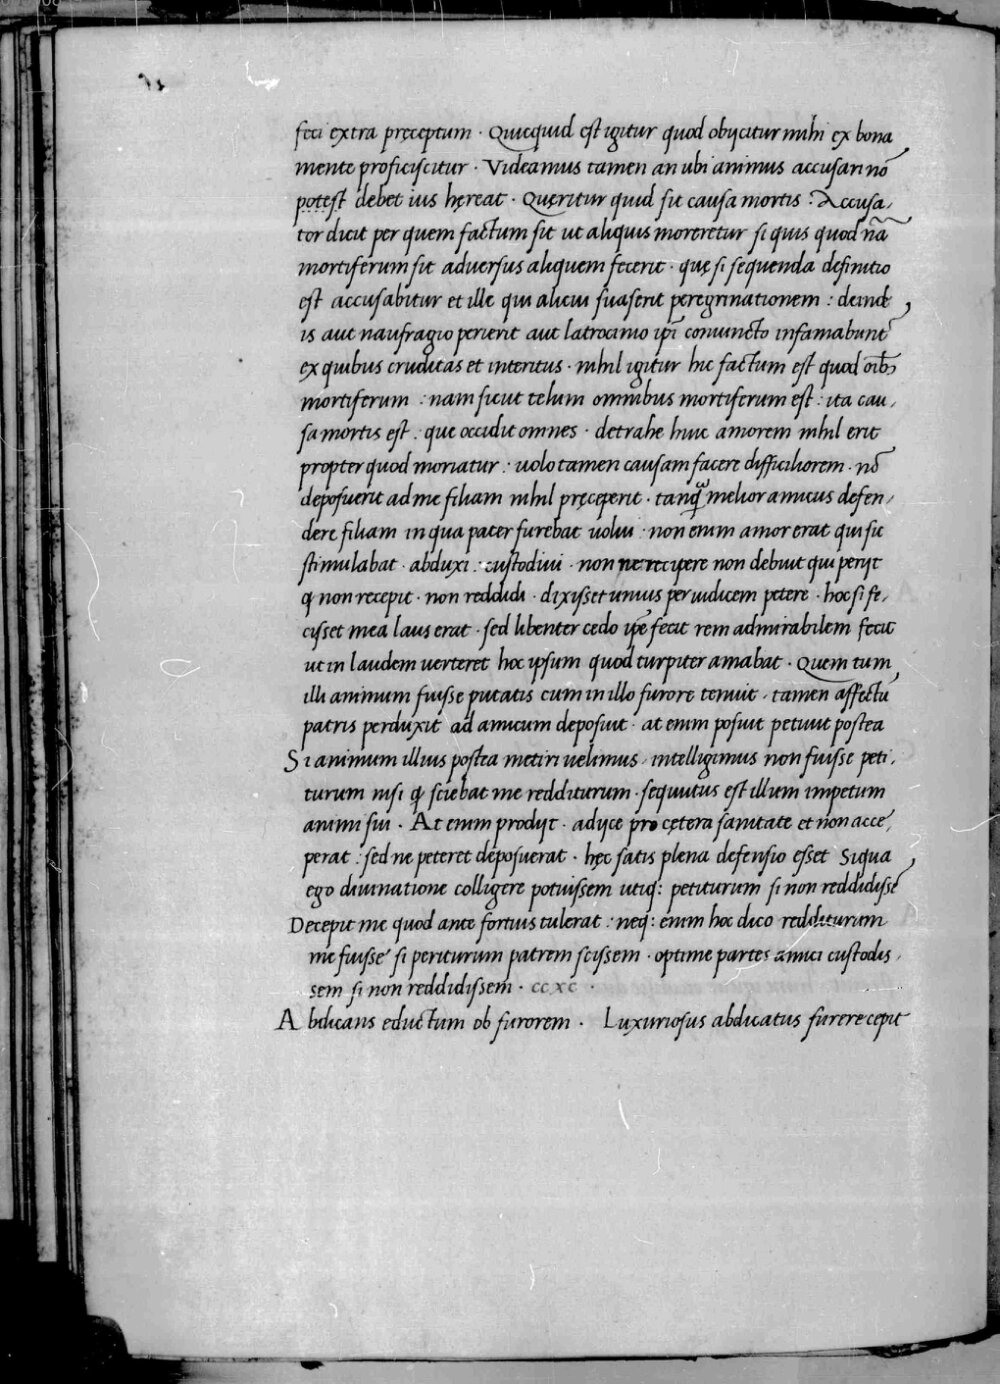 feci extra pręceptum · Quicquid est igitur quod obijcitur mihi ex bona
mente proficiscitur · Videamus tamen an ubi animus accusari nō
potest debet ius hęreat · Queritur quid sit causa mortis : Accusa,
tor dicit per quem factum sit ut aliquis moreretur si quis quod nā
mortiferum sit adversus aliquem fecerit · quę si sequenda definitio
est accusabitur et ille qui alicui suaserit peregrinationem : deinde
is aut naufragio perierit aut latrocinio ipī conuincto infamabunt
ex quibus cruditas et interitus · nihil igitur hic factum est quod oībꝫ
mortiferum : nam sicut telum omnibus mortiferum est : ita cau,
sa mortis est : que occidit omnes · detrahe huic amorem nihil erit
propter quod moriatur : uolo tamen causam facere difficiliorem · nō
deposuerit ad me filiam nihil pręceperit · tanq̃ melior amicus defen,
dere filiam in qua pater furebat uolui : non enim amor erat qui sic
stimulabat · abduxi : custodiui · non ne recipere non debuit qui perijt
q non recepit · non reddidi · dixisset unius per iudicem petere · hoc si fe,
cisset mea laus erat · sed libenter cedo ipē fecit rem admirabilem fecit
ut in laudem uerteret hoc ipsum quod turpiter amabat · Quem tum
illi animum fuisse putatis cum in illo furore tenuit · tamen affectū
patris perduxit ad amicum deposuit · at enim posuit petiuit postea
Si animum illius postea metiri uelimus · intelligimus non fuisse peti,
turum nisi q sciebat me redditurum · sequutus est illum impetum
animi sui · At enim prodijt · adijce pro cętera sanitate et non acce,
perat : sed ne peteret deposuerat · hęc satis plena defensio esset Siqua
ego diuinatione colligere potuissem utiq: petiturum si non reddidisse
Decepit me quod ante fortius tulerat : neq: enim hoc dico redditurum
me fuisse si periturum patrem scissem · optime partes amici custodis,
sem si non reddidissem · ccxc ·
Abdicans eductum ob furorem · Luxuriosus abdicatus furere cepit